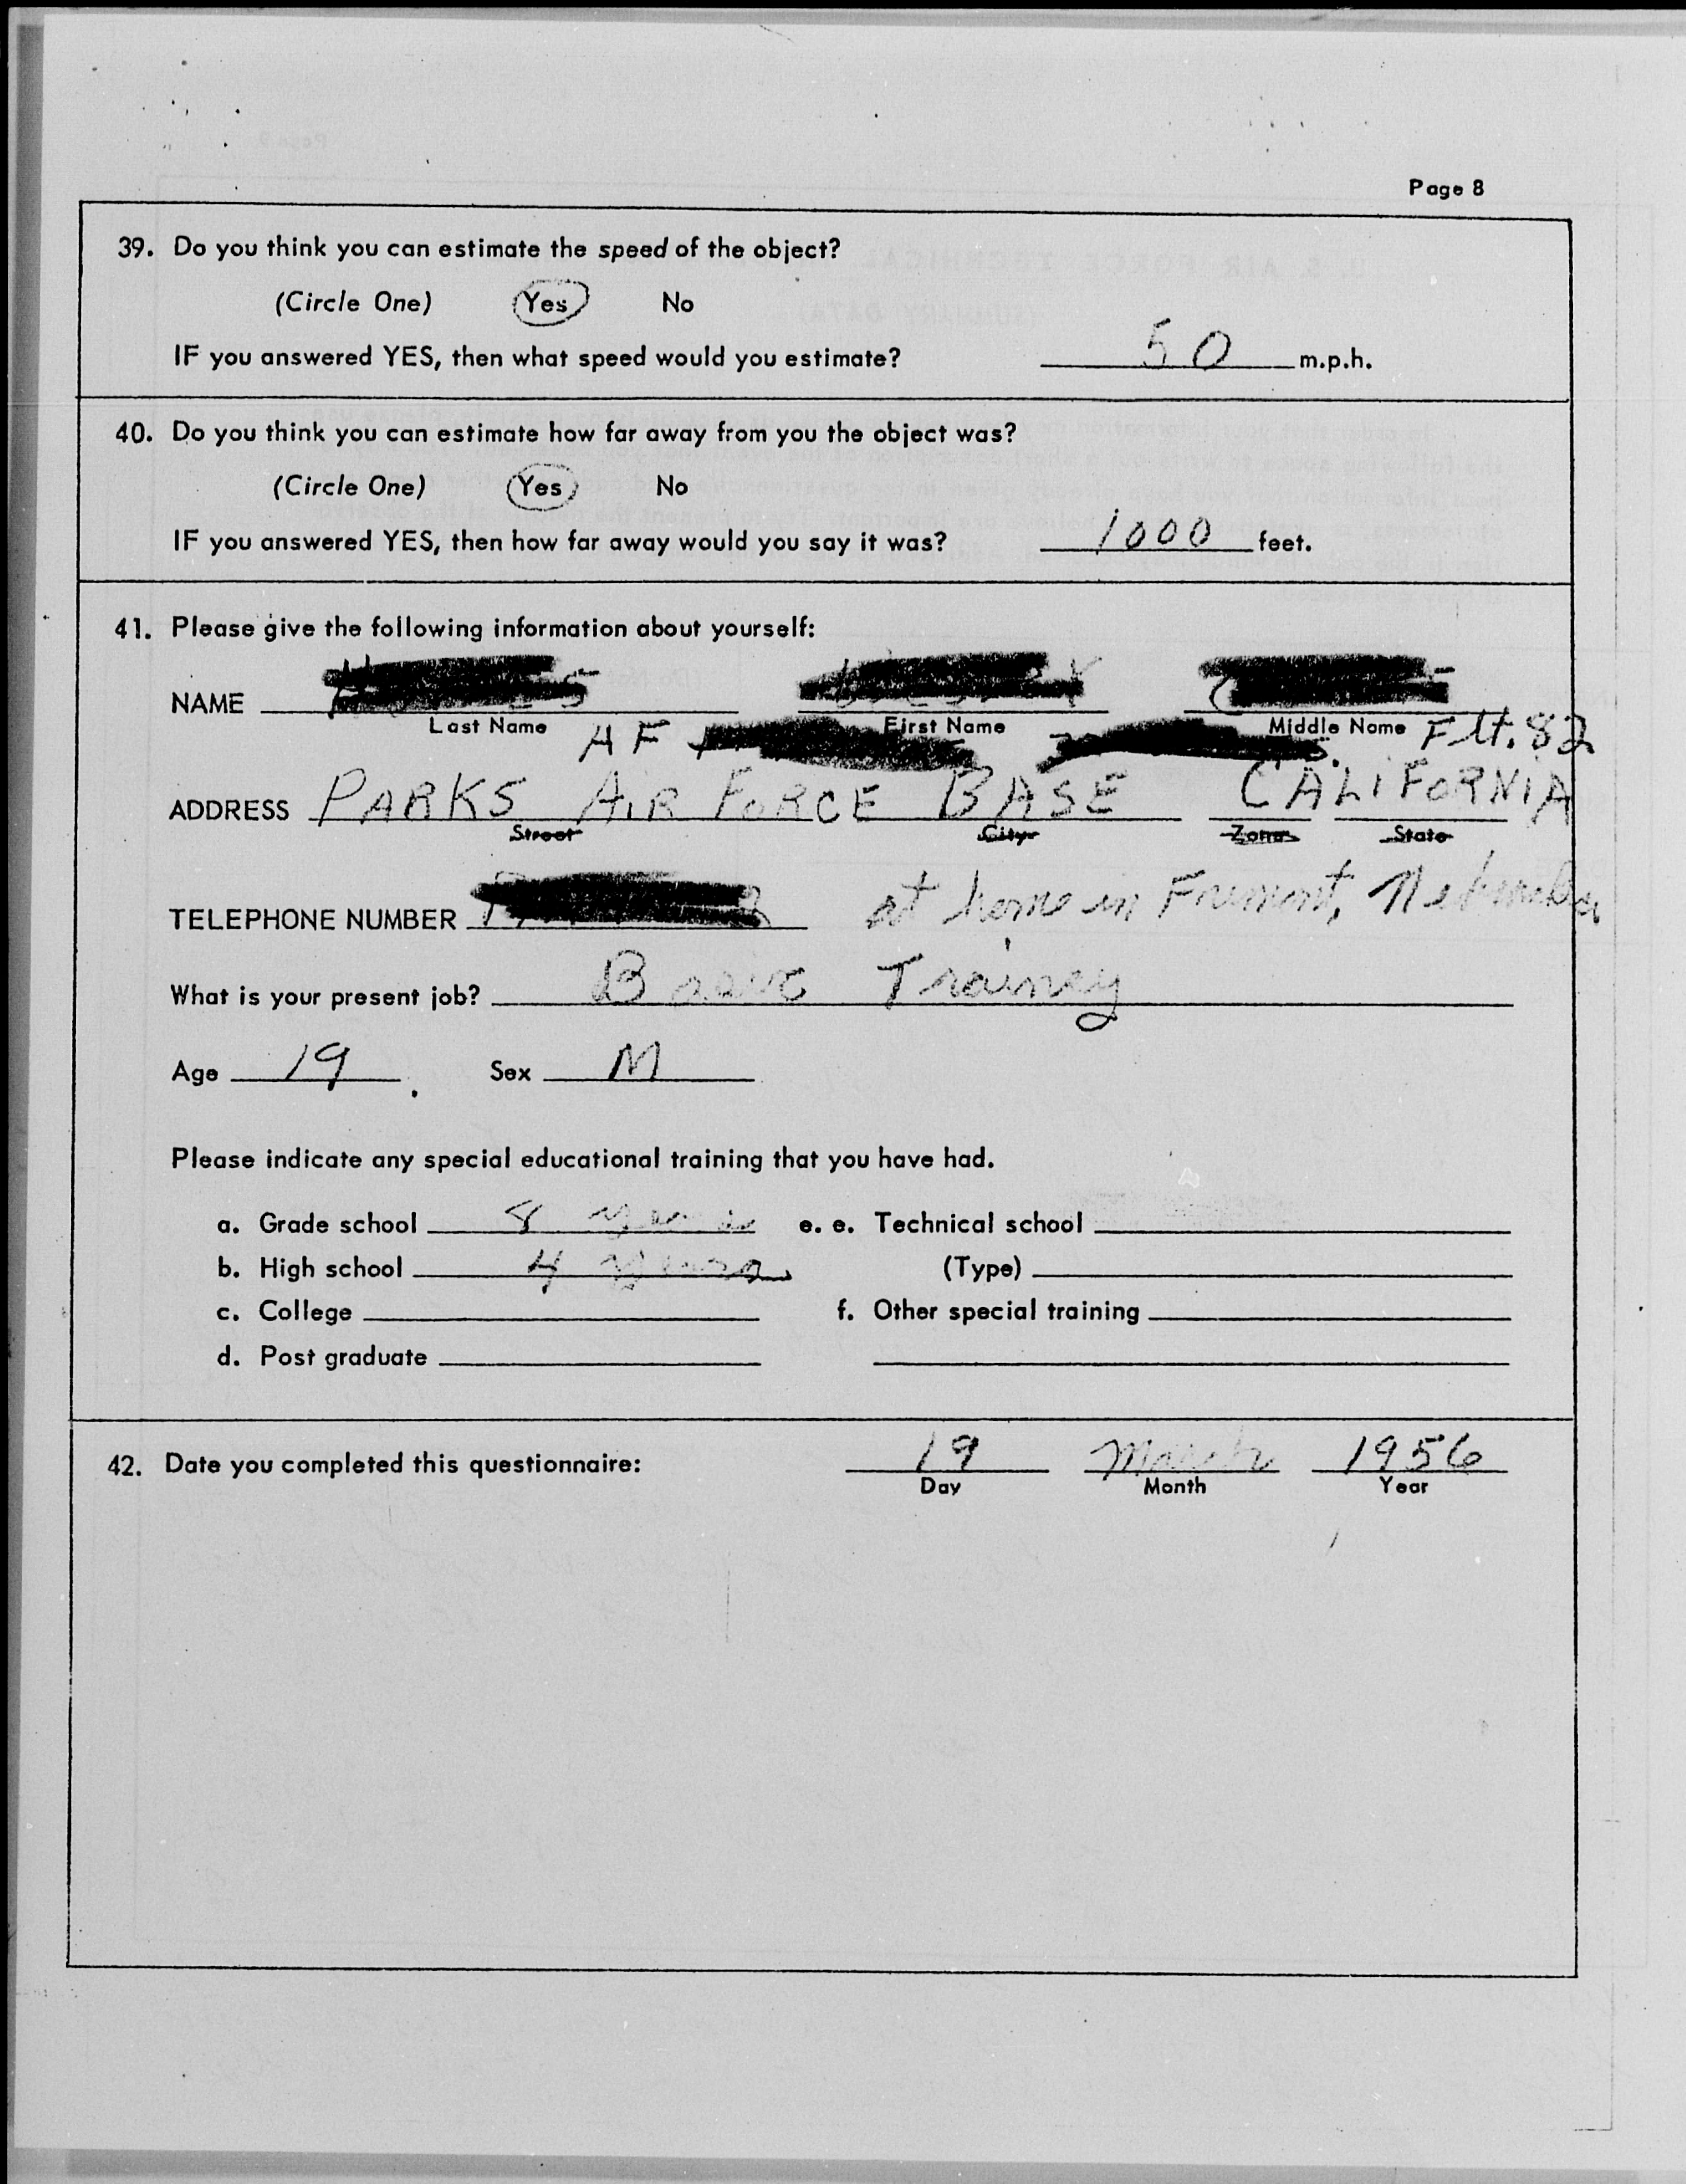 Page 8
39. Do you think you can estimate the speed of the object?
(Circle One) Yes No
IF you answered YES, then what speed would you estimate? 50 m.p.h.
40. Do you think you can estimate how far away from you the object was?
(Circle One) Yes No
IF you answered YES, then how far away would you say it was? 1000 feet.
41. Please give the following information about yourself:
NAME
Last Name First Name Middle Name
AF Flt. 82
ADDRESS PARKS AIR FORCE BASE CALIFORNIA
Street City Zone State
TELEPHONE NUMBER at home in Fremont, Nebraska
What is your present job? Basic Trainey
Age 19 Sex M
Please indicate any special educational training that you have had.
a. Grade school 8 years e. e. Technical school
b. High school 4 years (Type)
c. College f. Other special training
d. Post graduate
42. Date you completed this questionnaire: 19 March 1956
Day Month Year